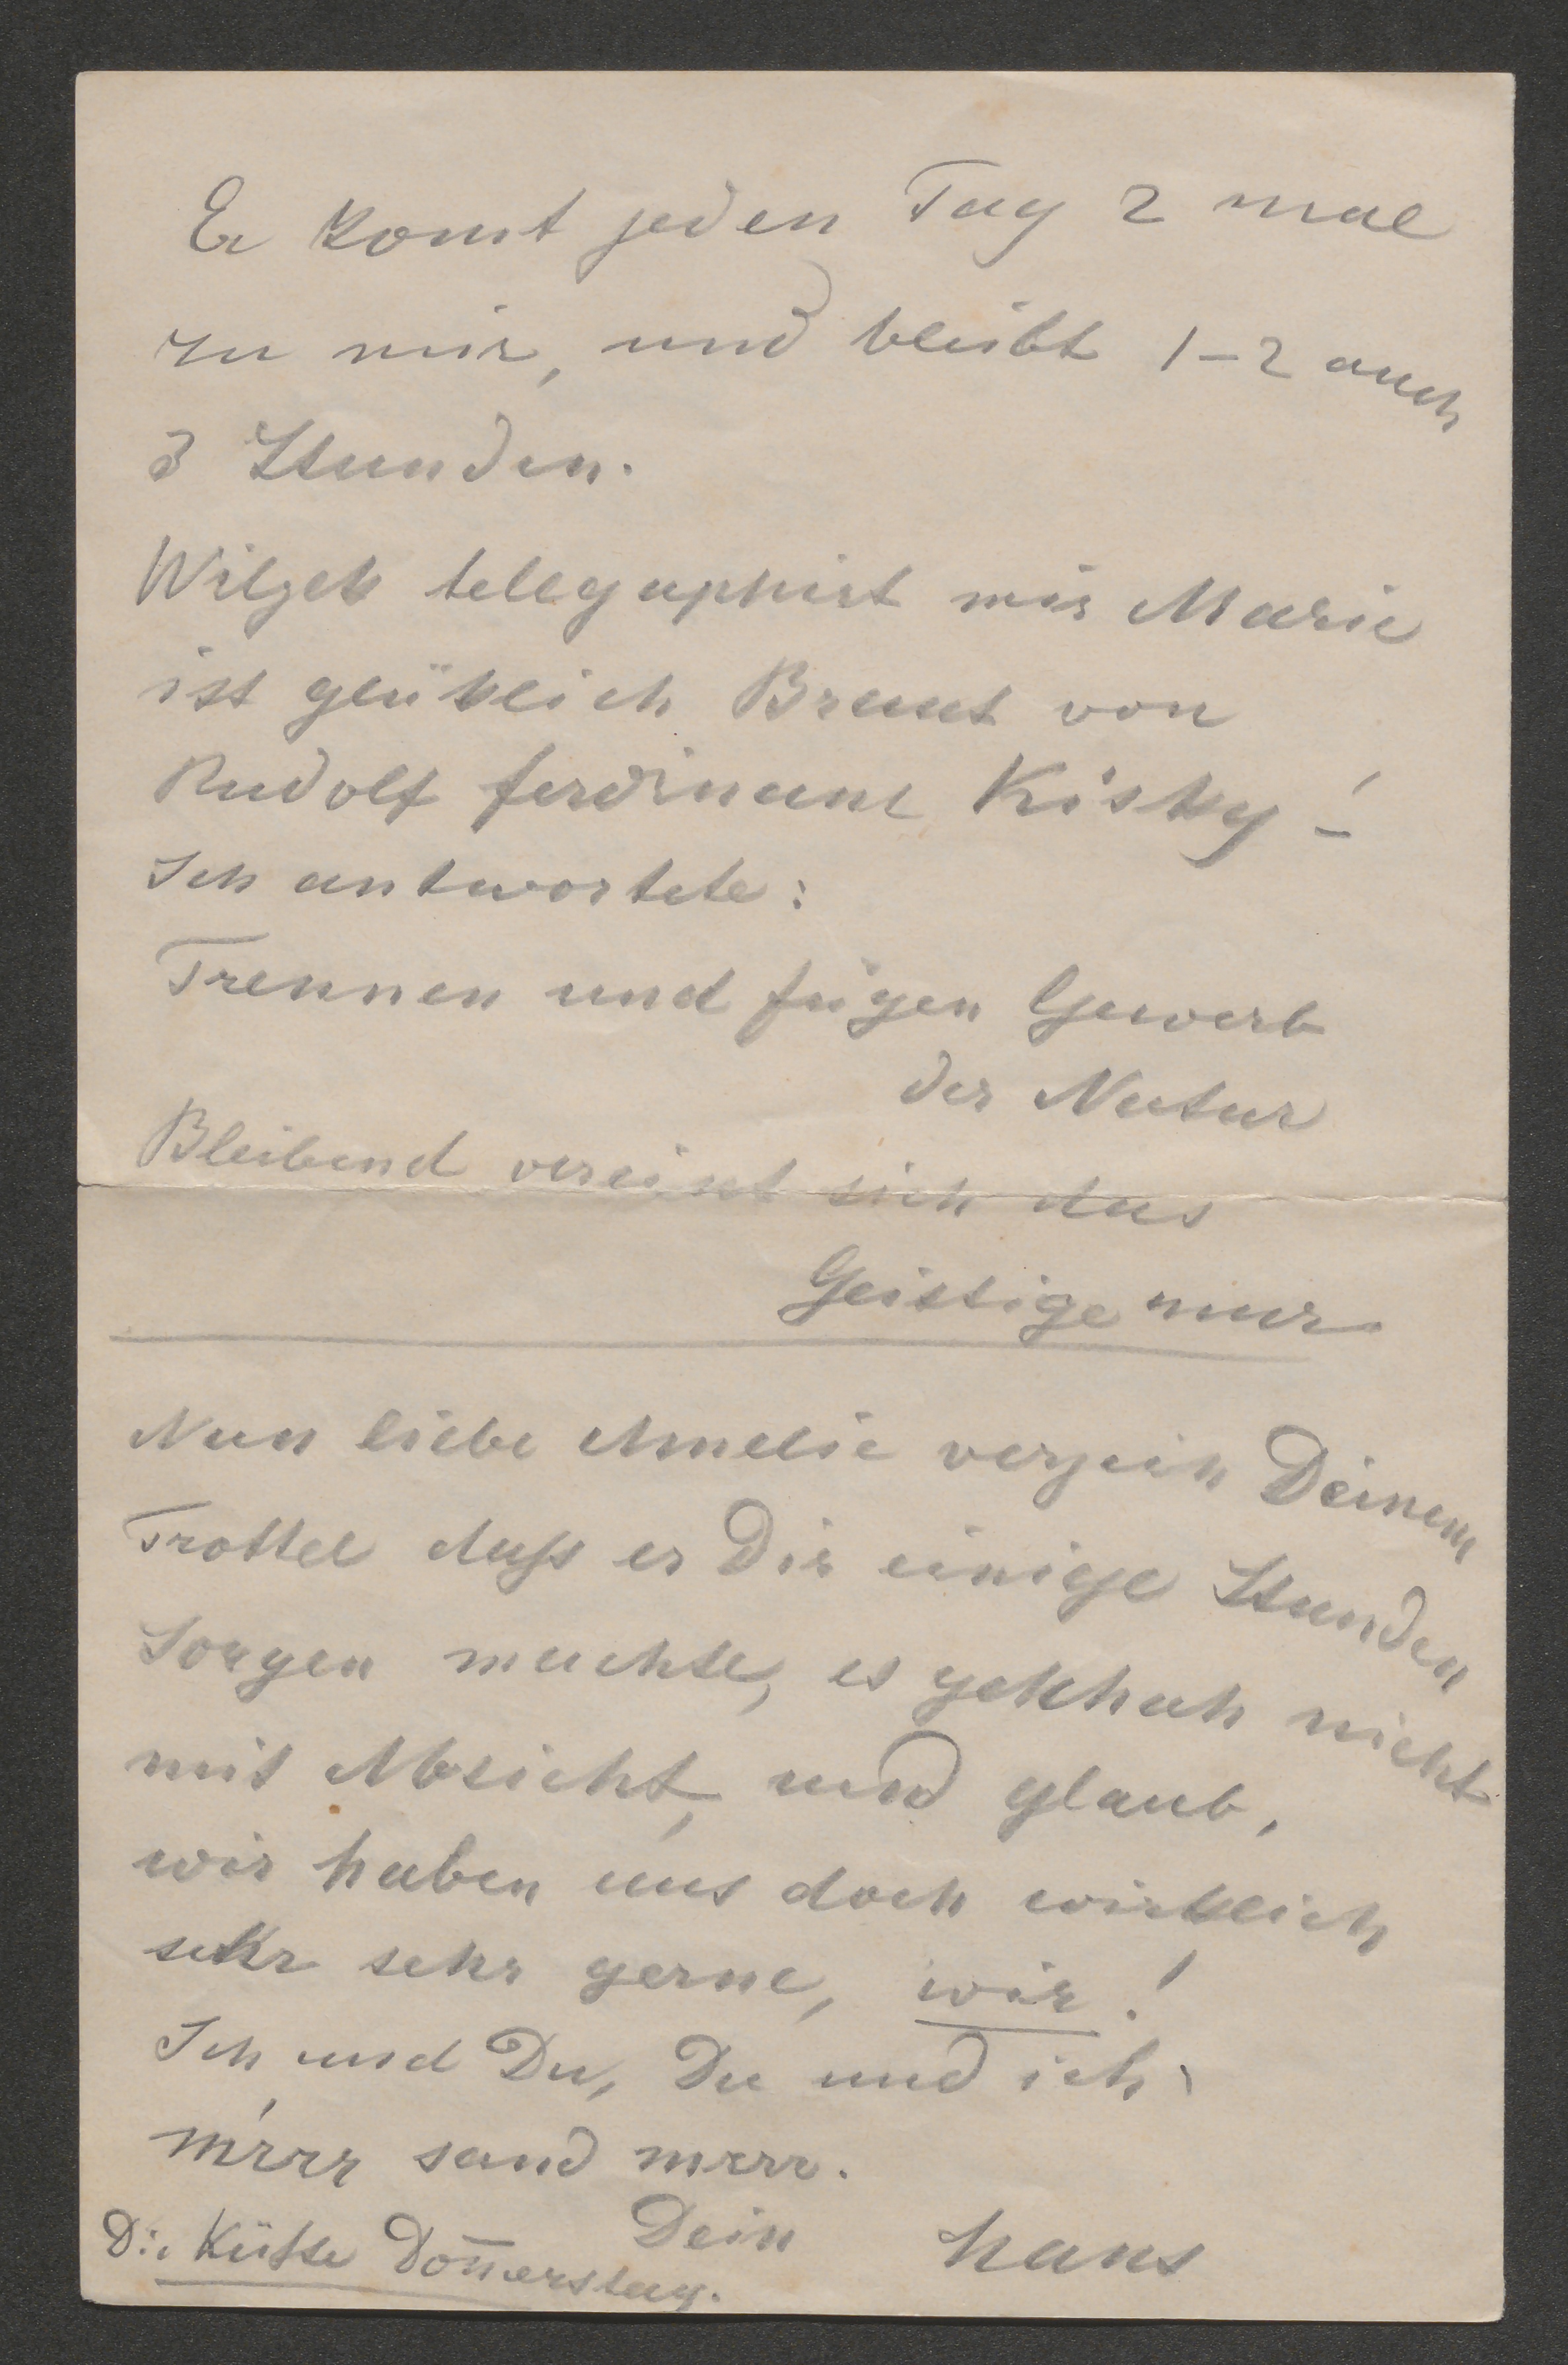 Er komt jeden Tag 2 mal
zu mir, und bleibt 1–2 auch
3 Stunden.
Wilzek telegraphirt mir Marie
ist glüklich Braut von
Rudolf Ferdinand Kisky!
Ich antwortete:
Trennen und fügen Gewerb
der Natur
Bleibend vereint sich das
Geistige nur
Nun liebe Amelie verzeih Deinem
Trottel daß er Dir einige Stunden
Sorgen machte, es geschah nicht
mit Absicht, und glaub,
wir haben uns doch wirklich
sehr sehr gerne, wir!
Ich und Du, Du und ich
mrrr sand mrrr.
Dein Hans
Die Donnerstag.